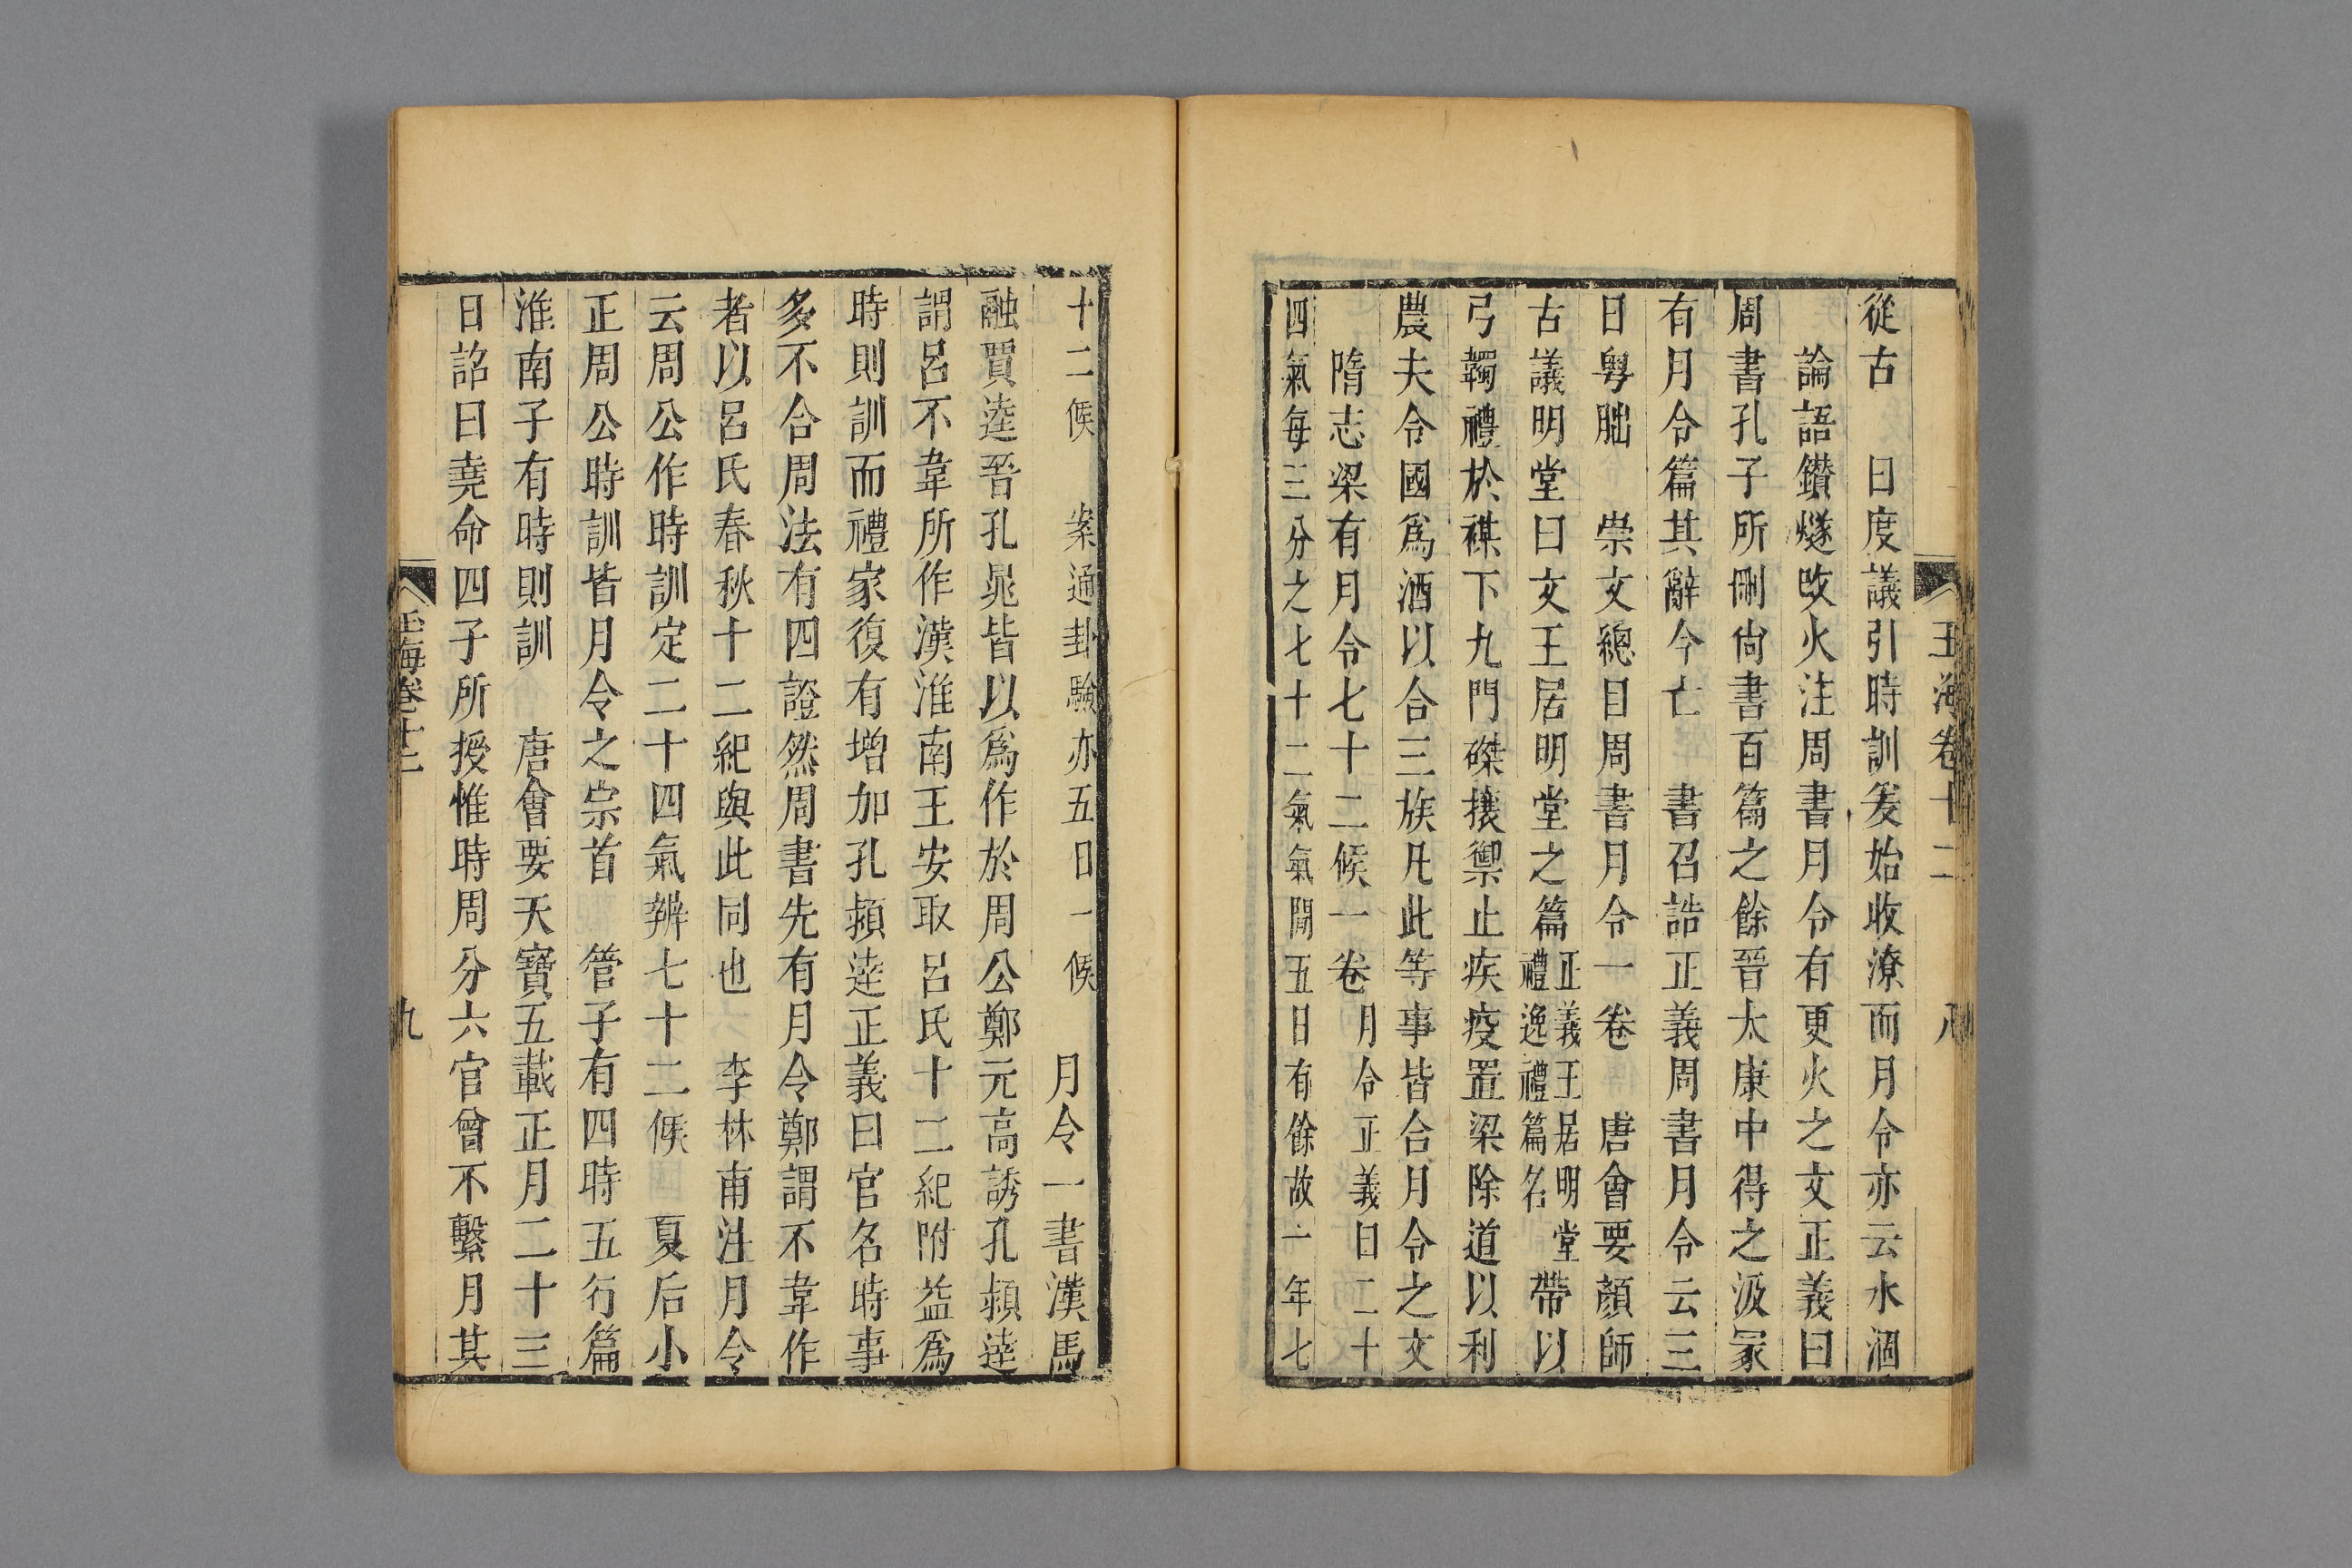 玉海卷十二　八
從古　日度議引時訓爰始收潦而月令亦云水涸
論語鑽燧改火注周書月令有更火之文正義曰
周書孔子所刪尚書百篇之餘晉太康中得之汲冢
有月令篇其辭今亡　書召誥正義周書月令云三
日粵朏　崇文總目周書月令一卷　唐會要顏師
古議明堂曰文王居明堂之篇正義王居明堂禮逸禮篇名帶以
弓韣禮於禖下九門磔攘禦止疾疫置梁除道以利
農夫令國爲酒以合三族凡此等事皆合月令之文
隋志梁有月令七十二候一卷月令正義曰二十
四氣每三分之七十二氣氣間五日有餘故一年七
十二候　案通卦驗亦五日一候　月令一書漢馬
融賈逵晉孔晁皆以爲作於周公鄭元高誘孔熲逵
謂呂不韋所作漢淮南王安取呂氏十二紀附益爲
時則訓而禮家復有增加孔熲逵正義曰官名時事
多不合周法有四證然周書先有月令鄭謂不韋作
者以呂氏春秋十二紀與此同也　李林甫注月令
云周公作時訓定二十四氣辨七十二候　夏后小
正周公時訓皆月令之宗首　管子有四時五行篇
淮南子有時則訓　唐會要天寶五載正月二十三
日詔曰堯命四子所授惟時周分六官曾不繫月其
玉海卷十二　九